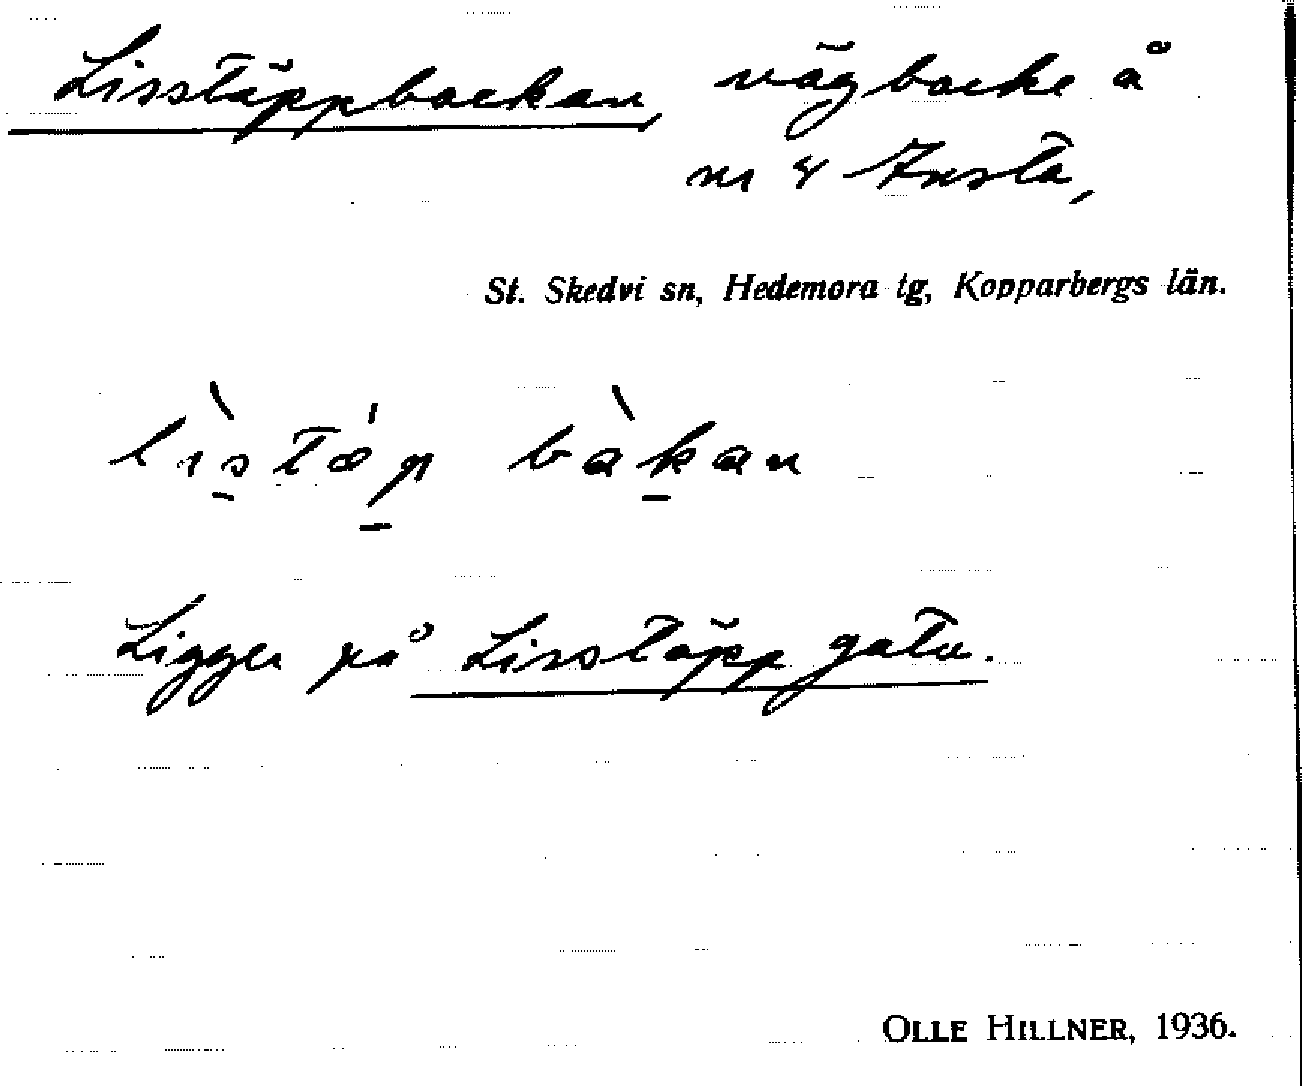 Lisstäppbackan, vägbacke å
nr 8 Insta,
St. Skedvi sn, Hedemora tg, Kopparbergs län.
lìstǽp bàkan
Ligger på Lisstäppgatu.
OLLE HILLNER, 1936.